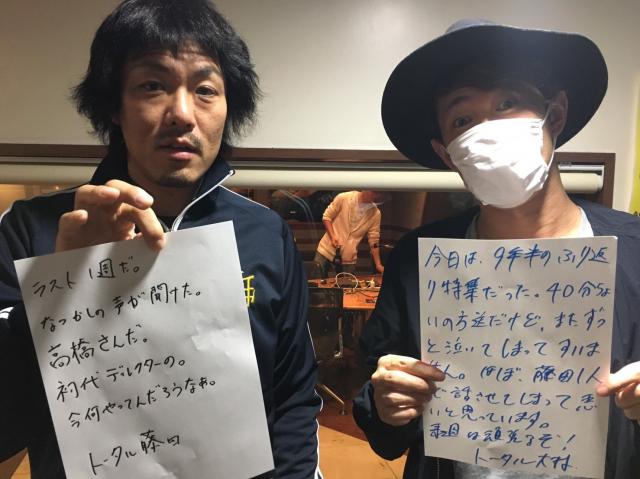 ラスト1週だ。
なつかしの声が聞けた。
高橋さんだ。
初代ディレクターの。
今何やってんだろうなぁ。
トータル藤田
今日は、9年半のふり返
り特集だった。40分ちょ
いの放送だけど、またずっ
と泣いてしまってすいま
せん。ほぼ、藤田1人
で話させてしまって悪
いと思っています。
来週は頑張るぞ！
トータル大村